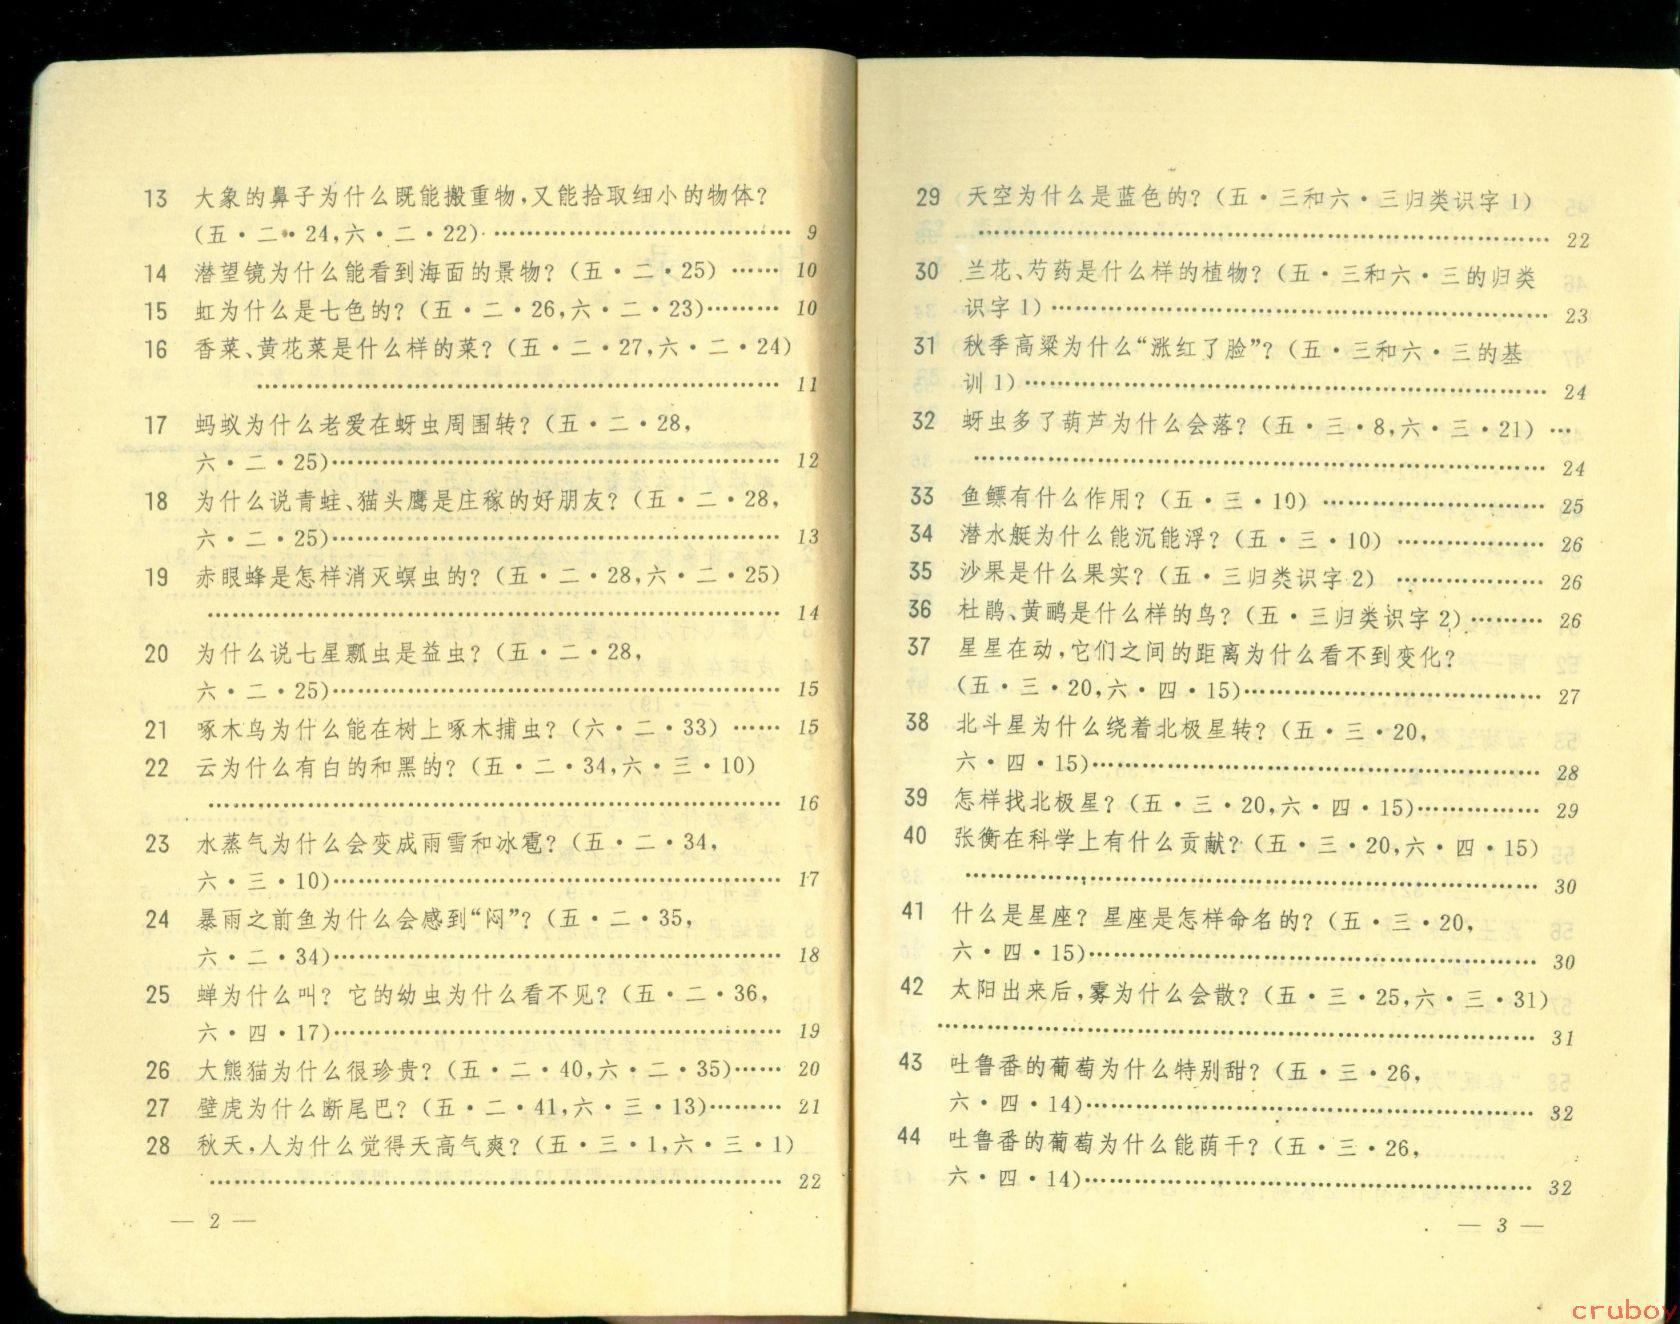 13 大象的鼻子为什么既能搬重物,又能拾取细小的物体?
(五·二·24,六·二·22)…………………………… 9
14 潜望镜为什么能看到海面的景物?(五·二·25) …… 10
15 虹为什么是七色的?(五·二·26,六·二·23)……… 10
16 香菜、黄花菜是什么样的菜?(五·二·27,六·二·24)
…………………………………………………… 11
17 蚂蚁为什么老爱在蚜虫周围转?(五·二·28,
六·二·25)…………………………………………… 12
18 为什么说青蛙、猫头鹰是庄稼的好朋友?(五·二·28,
六·二·25)…………………………………………… 13
19 赤眼蜂是怎样消灭螟虫的?(五·二·28,六·二·25)
………………………………………………………… 14
20 为什么说七星瓢虫是益虫?(五·二·28,
六·二·25)…………………………………………… 15
21 啄木鸟为什么能在树上啄木捕虫?(六·二·33) …… 15
22 云为什么有白的和黑的?(五·二·34,六·三·10)
………………………………………………………… 16
23 水蒸气为什么会变成雨雪和冰雹?(五·二·34,
六·三·10)…………………………………………… 17
24 暴雨之前鱼为什么会感到“闷”?(五·二·35,
六·二·34)…………………………………………… 18
25 蝉为什么叫? 它的幼虫为什么看不见?(五·二·36,
六·四·17)…………………………………………… 19
26 大熊猫为什么很珍贵?(五·二·40,六·二·35)…… 20
27 壁虎为什么断尾巴?(五·二·41,六·三·13)……… 21
28 秋天,人为什么觉得天高气爽?(五·三·1,六·三·1)
………………………………………………………… 22
— 2 —
29 天空为什么是蓝色的?(五·三和六·三归类识字1)
………………………………………………………… 22
30 兰花、芍药是什么样的植物?(五·三和六·三的归类
识字1)……………………………………………… 23
31 秋季高粱为什么“涨红了脸”?(五·三和六·三的基
训1)………………………………………………… 24
32 蚜虫多了葫芦为什么会落?(五·三·8,六·三·21) …
………………………………………………………… 24
33 鱼鳔有什么作用?(五·三·10) …………………… 25
34 潜水艇为什么能沉能浮?(五·三·10) …………… 26
35 沙果是什么果实?(五·三归类识字2) …………… 26
36 杜鹃、黄鹂是什么样的鸟?(五·三归类识字2)……… 26
37 星星在动,它们之间的距离为什么看不到变化?
(五·三·20,六·四·15)…………………………… 27
38 北斗星为什么绕着北极星转?(五·三·20,
六·四·15)…………………………………………… 28
39 怎样找北极星?(五·三·20,六·四·15)…………… 29
40 张衡在科学上有什么贡献?(五·三·20,六·四·15)
………………………………………………………… 30
41 什么是星座? 星座是怎样命名的?(五·三·20,
六·四·15)…………………………………………… 30
42 太阳出来后,雾为什么会散?(五·三·25,六·三·31)
………………………………………………………… 31
43 吐鲁番的葡萄为什么特别甜?(五·三·26,
六·四·14)…………………………………………… 32
44 吐鲁番的葡萄为什么能荫干?(五·三·26,
六·四·14)…………………………………………… 32
— 3 —
cruboy